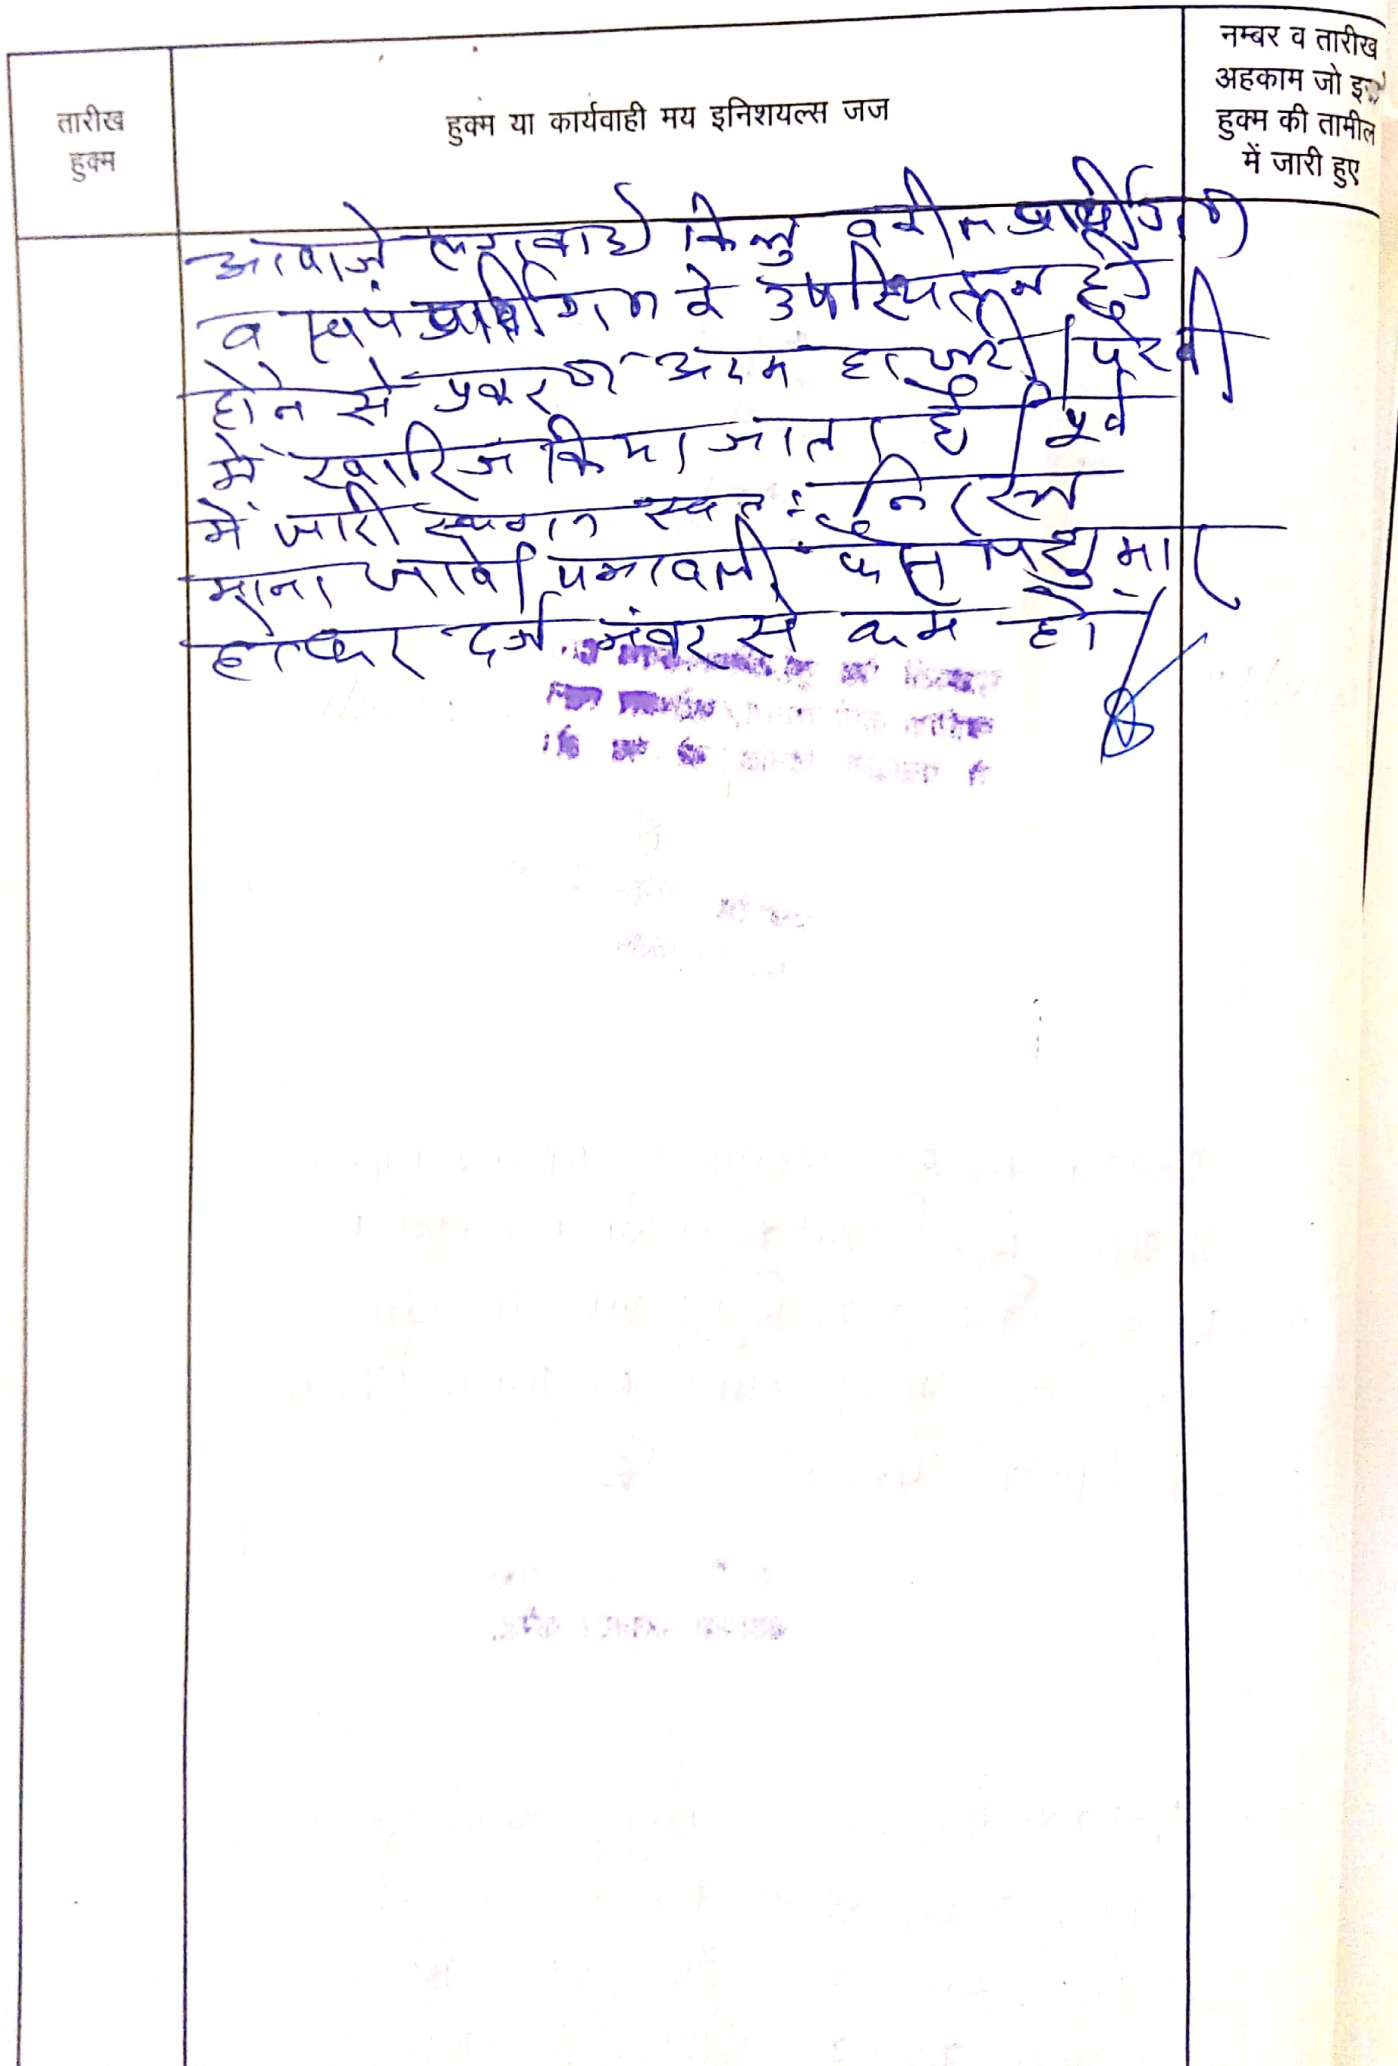 तारीख
हुक्म
हुक्म या कार्यवाही मय इनिशयल्स जज
नम्बर व तारीख
अहकाम जो इस
हुक्म की तामील
में जारी हुए
आवाजें लगवाई किन्तु वकील प्रार्थीगण
व स्वयं प्रार्थीगण के उपस्थित न
होने से प्रकरण अदम हाजरी / पैरवी
में खारिज किया जाता है / पूर्व
में जारी स्थगन स्वतः निरस्त
माना जावे / पत्रावली फैसल शुमार
होकर दर्ज नंबर से कम हो /